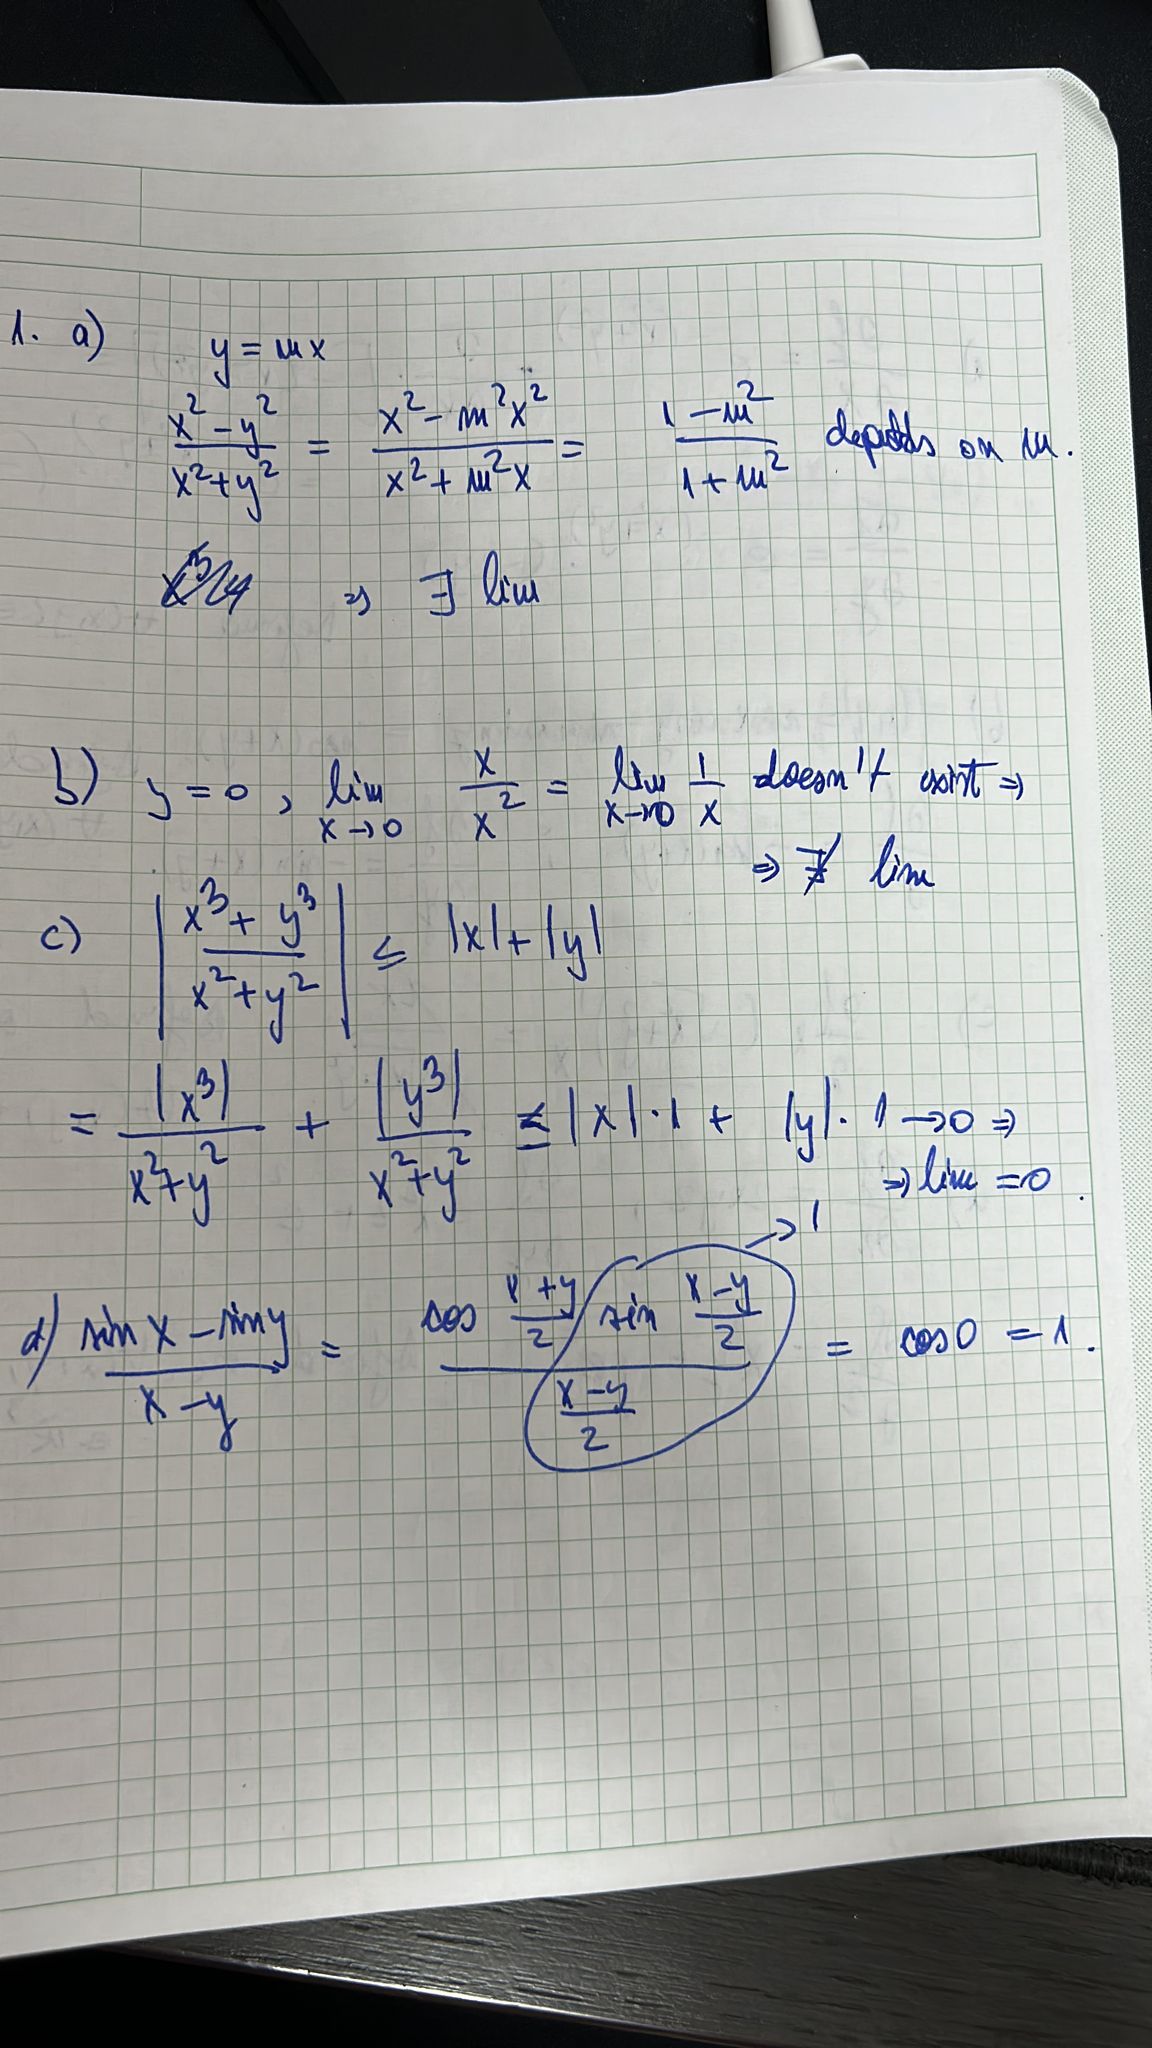 1. a) y = mx
x² - y² / x² + y² = x² - m²x² / x² + m²x = 1 - m² / 1 + m² depends on m.
⇒ ∃ lim
b) y = 0, lim x→0 x / x² = lim x→0 1 / x doesn't exist ⇒
⇒ ∄ lim
c) | x³ + y³ / x² + y² | ≤ |x| + |y|
= |x³| / x² + y² + |y³| / x² + y² ≤ |x| · 1 + |y| · 1 → 0 ⇒
⇒ lim = 0.
→ 1
d) sin x - sin y / x - y = cos x + y / 2 sin x - y / 2 / x - y / 2 = cos 0 = 1.